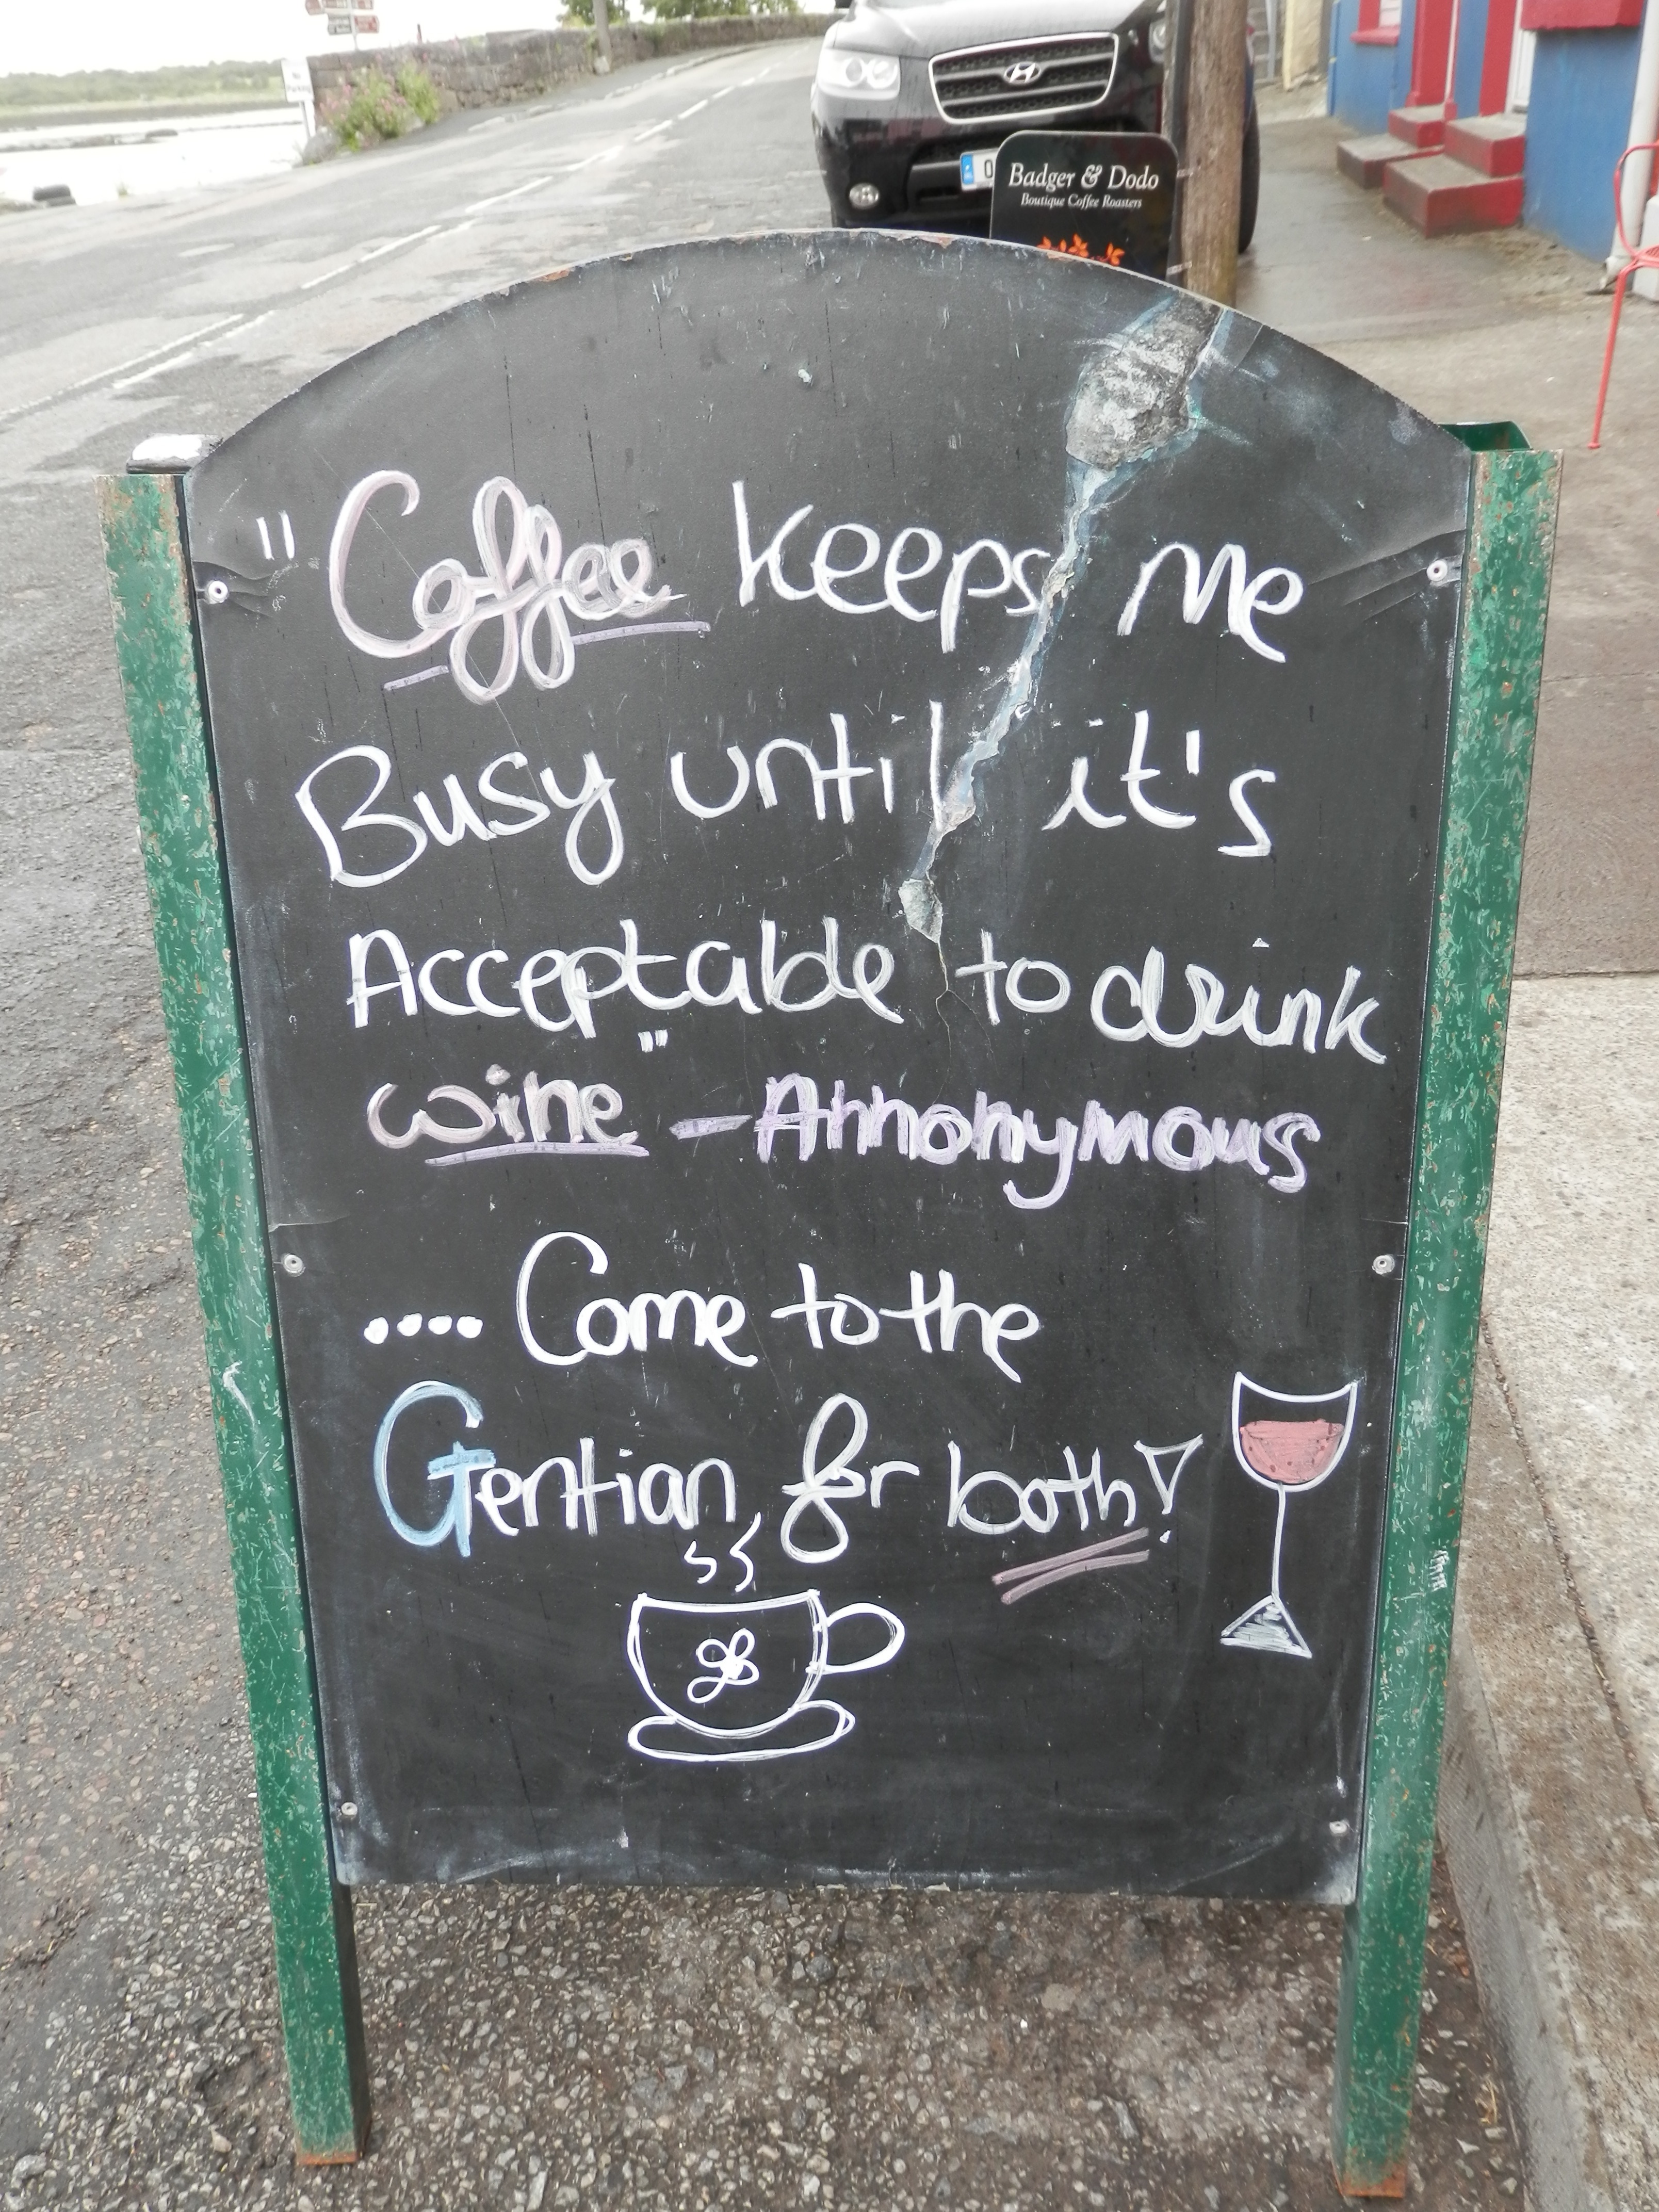 Badger & Dodo
Boutique Coffee Roasters
"Coffee keeps me
Busy until it's
Acceptable to drink
wine" - Annonymous
.... Come to the
Gentian for both!